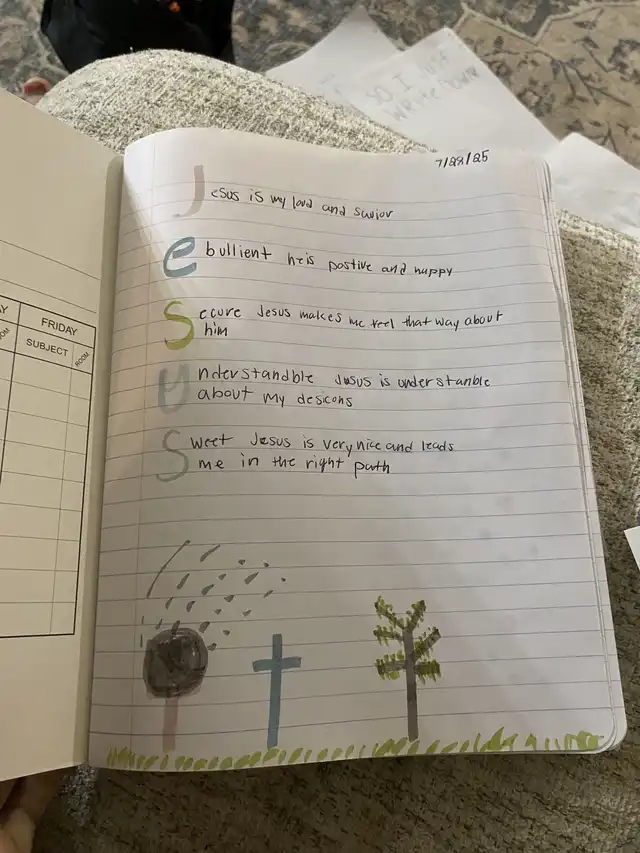 SO I NOT
WRITE DOWN
7/28/25
Jesus is my lord and savior
Ebullient he is postive and happy
Secure Jesus makes me feel that way about
him
Understandble Jesus is understanble
about my desicons
Sweet Jesus is very nice and leads
me in the right path
AY
FRIDAY
OM
SUBJECT
ROOM